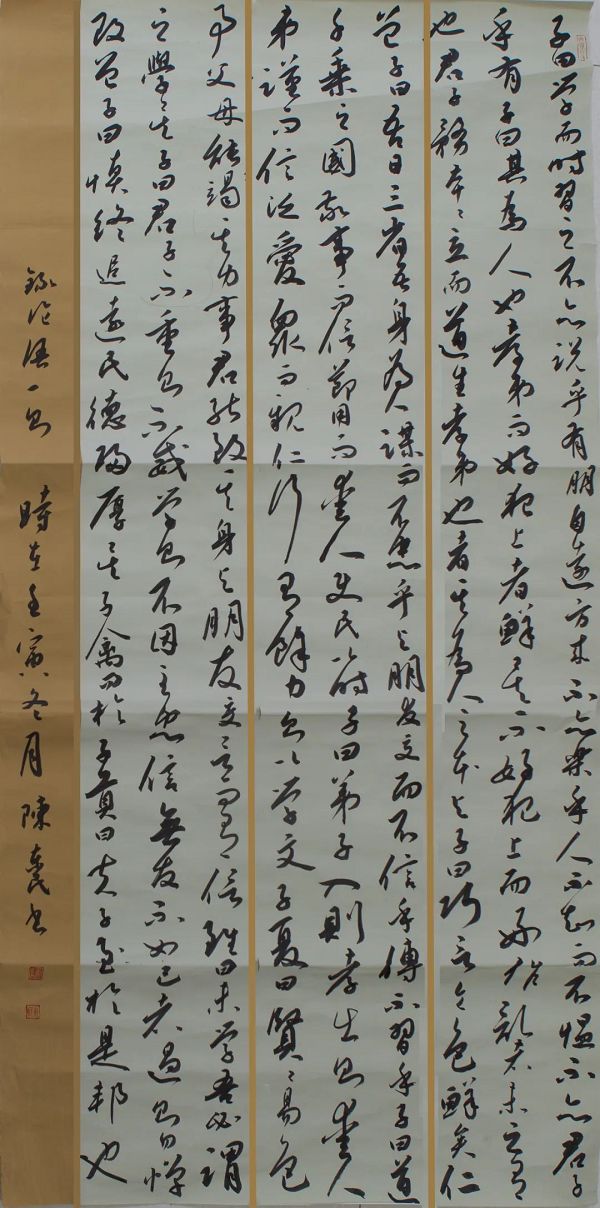 子曰学而時習之不亦説乎有朋自遠方来不亦樂乎人不知而不愠不亦君子
乎有子曰其為人也孝弟而好犯上者鮮矣不好犯上而好作亂者未之有
也君子務本〻立而道生孝弟也者其為人之本与子曰巧言令色鮮矣仁
曾子曰吾日三省吾身為人謀而不忠乎与朋友交而不信乎傳不習乎子曰道
千乘之國敬事而信節用而愛人使民以時子曰弟子入則孝出則愛人
弟謹而信泛愛眾而親仁行有餘力則以学文子夏曰賢〻易色
事父母能竭其力事君能致其身与朋友交言而有信雖曰未学吾必謂
之學〻矣子曰君子不重則不威学則不固主忠信無友不如己者過則勿憚
改曾子曰慎終追遠民德歸厚矣子禽問於子貢曰夫子至於是邦也
録論語一則 時在壬寅冬月 陳書